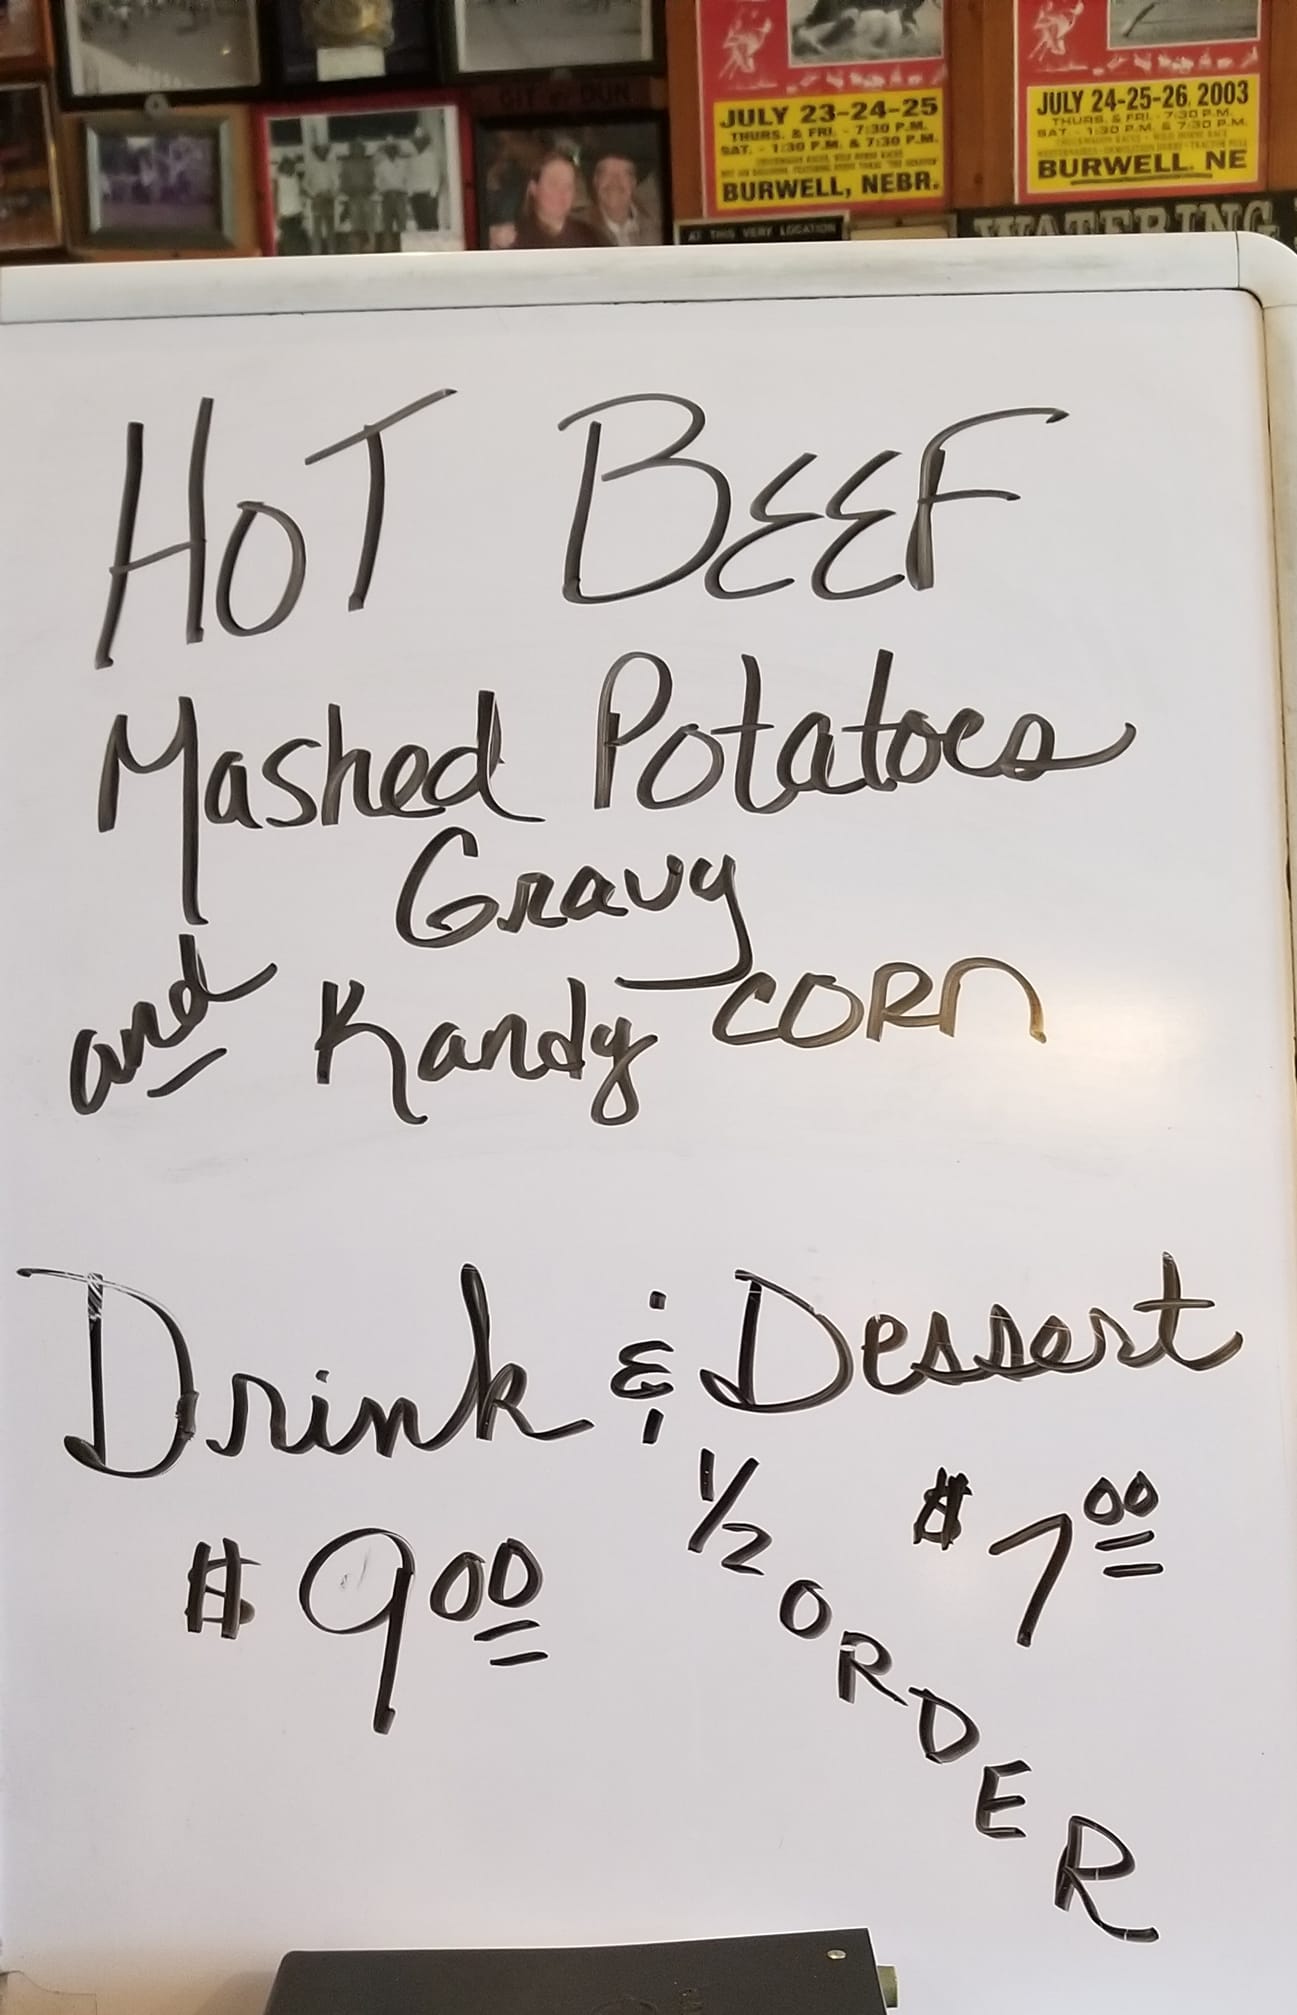 GIT R DUN
JULY 23-24-25
THURS. & FRI. - 7:30 P.M.
SAT. - 1:30 P.M. & 7:30 P.M.
BURWELL, NEBR.
JULY 24-25-26, 2003
THURS. & FRI. - 7:30 P.M.
SAT. - 1:30 P.M. & 7:30 P.M.
BURWELL, NE
AT THIS VERY LOCATION
WATERING
HOT BEEF
Mashed Potatoes
Gravy
and Kandy CORn
Drink & Dessert
$9.00
1/2 ORDER $7.00